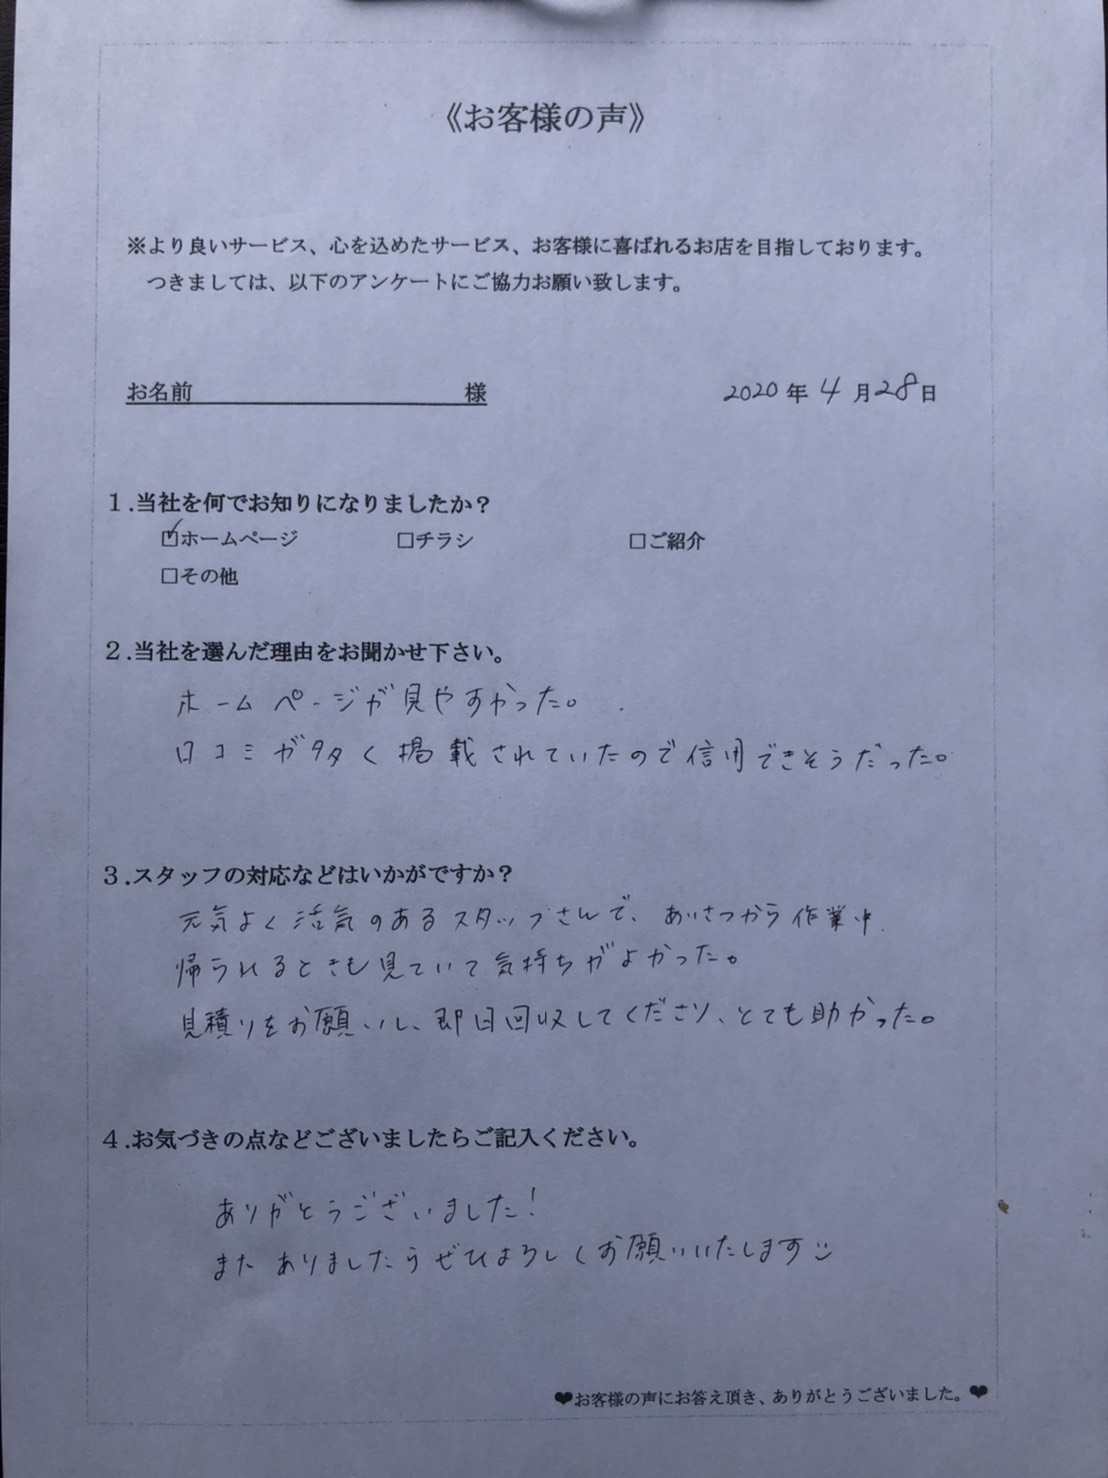 《お客様の声》
※より良いサービス、心を込めたサービス、お客様に喜ばれるお店を目指しております。
つきましては、以下のアンケートにご協力お願い致します。
お名前 様 2020年 4月28日
1.当社を何でお知りになりましたか？
☑ホームページ □チラシ □ご紹介
□その他
2.当社を選んだ理由をお聞かせ下さい。
ホームページが見やすかった。
口コミが多く掲載されていたので信用できそうだった。
3.スタッフの対応などはいかがですか？
元気よく活気のあるスタッフさんで、あいさつから作業中
帰られるときも見ていて気持ちがよかった。
見積りをお願いし、即日回収してくださり、とても助かった。
4.お気づきの点などございましたらご記入ください。
ありがとうございました！
またありましたらぜひよろしくお願いいたします
❤お客様の声にお答え頂き、ありがとうございました。❤